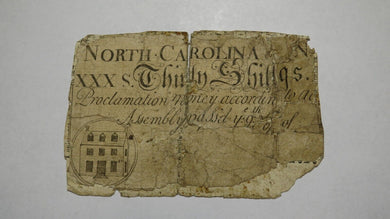 NORTH CAROLINA N
XXX S Thirty Shillgs.
Proclamation Money accordin to
Assembly pass'd ye 9th of